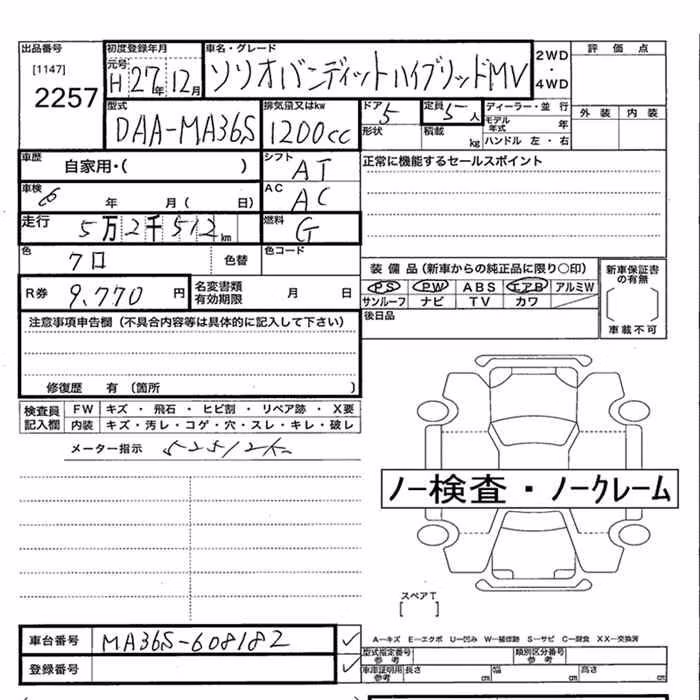 出品番号 初度登録年月 車名・グレード 2WD・4WD 評価点
[1147] 元号 H 27年 12月 ソリオバンディットハイブリッドMV
2257
型式 排気量又はkw ドア 5 定員 5人 ディーラー・並行 外装 内装
DAA-MA36S 1200cc 形状 積載 kg モデル年式 年
ハンドル 左・右
車歴 自家用・( ) シフト AT 正常に機能するセールスポイント
車検 6 年 月( 日) AC AC
走行 5万2千512km 燃料 G
色 クロ 色替 色コード
装備品(新車からの純正品に限り○印) 新車保証書の有無
R券 9,770円 名変書類有効期限 月 日 PS PW ABS エアB アルミW
サンルーフ ナビ TV カワ 車載不可
注意事項申告欄(不具合内容等は具体的に記入して下さい) 後日品
修復歴 有(箇所 )
検査員記入欄 FW キズ・飛石・ヒビ割・リペア跡・X要
内装 キズ・汚レ・コゲ・穴・スレ・キレ・破レ
メーター指示 52512K
ノー検査・ノークレーム
スペアT
[ ]
車台番号 MA36S-608182 ✓
A-キズ E-エクボ U-凹み W-補修跡 S-サビ C-腐食 XX-交換済
型式指定番号 参考 類別区分番号 参考
登録番号 ✓ 車庫証明用参考 長さ cm 幅 cm 高さ cm